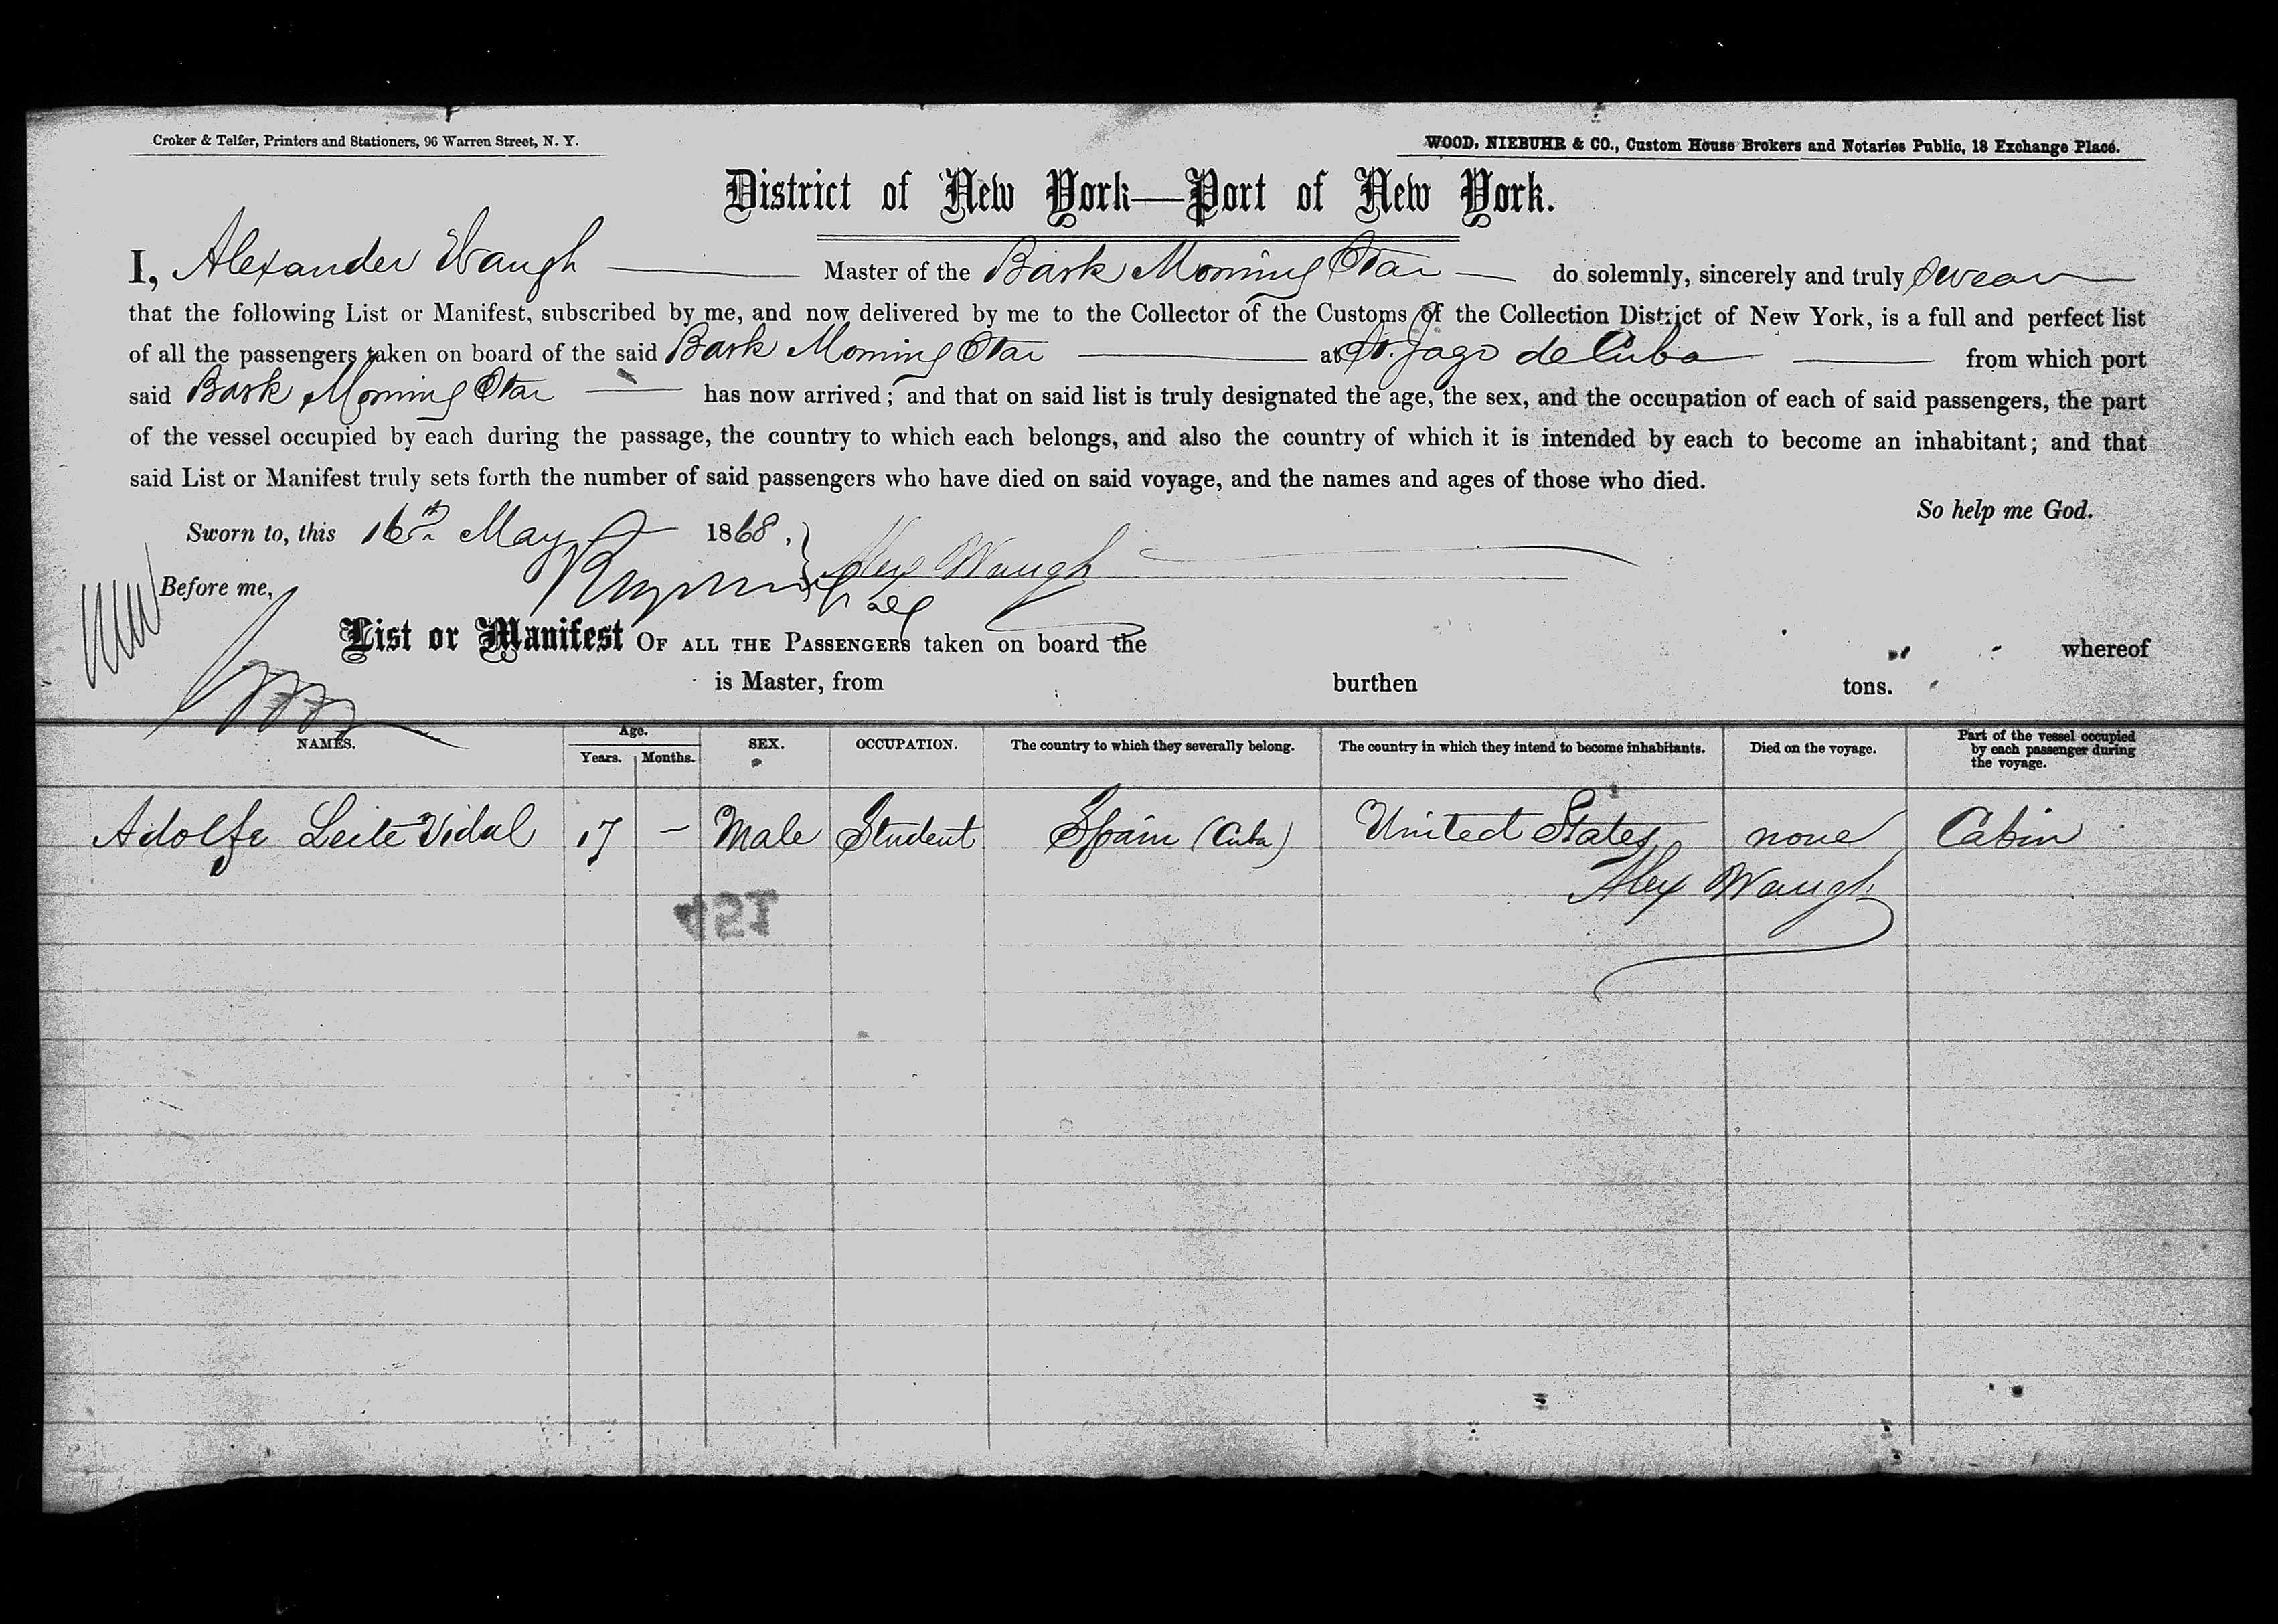 Croker & Telfer, Printers and Stationers, 96 Warren Street, N. Y.
WOOD, NIEBUHR & CO., Custom House Brokers and Notaries Public, 18 Exchange Place.
District of New York—Port of New York.
I, Alexander Waugh Master of the Bark Morning Star do solemnly, sincerely and truly swear
that the following List or Manifest, subscribed by me, and now delivered by me to the Collector of the Customs of the Collection District of New York, is a full and perfect list
of all the passengers taken on board of the said Bark Morning Star at St. Jago de Cuba from which port
said Bark Morning Star has now arrived; and that on said list is truly designated the age, the sex, and the occupation of each of said passengers, the part
of the vessel occupied by each during the passage, the country to which each belongs, and also the country of which it is intended by each to become an inhabitant; and that
said List or Manifest truly sets forth the number of said passengers who have died on said voyage, and the names and ages of those who died.
So help me God.
Sworn to, this 16th May 1868,
Alex Waugh
Before me,
List or Manifest OF ALL THE PASSENGERS taken on board the whereof
is Master, from burthen tons.
NAMES. Age. Years. Months. SEX. OCCUPATION. The country to which they severally belong. The country in which they intend to become inhabitants. Died on the voyage. Part of the vessel occupied by each passenger during the voyage.
Adolfo Leite Vidal 17 – Male Student Spain (Cuba) United States none Cabin
Alex Waugh